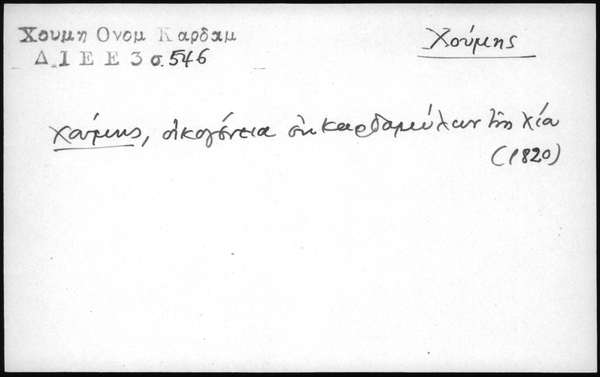 Χουμη Ονομ Καρδαμ
Δ I E E 3 σ. 546
Χούμης
Χούμης, οἰκογένεια ἐκ Καρδαμύλων τῆς Χίου
(1820)